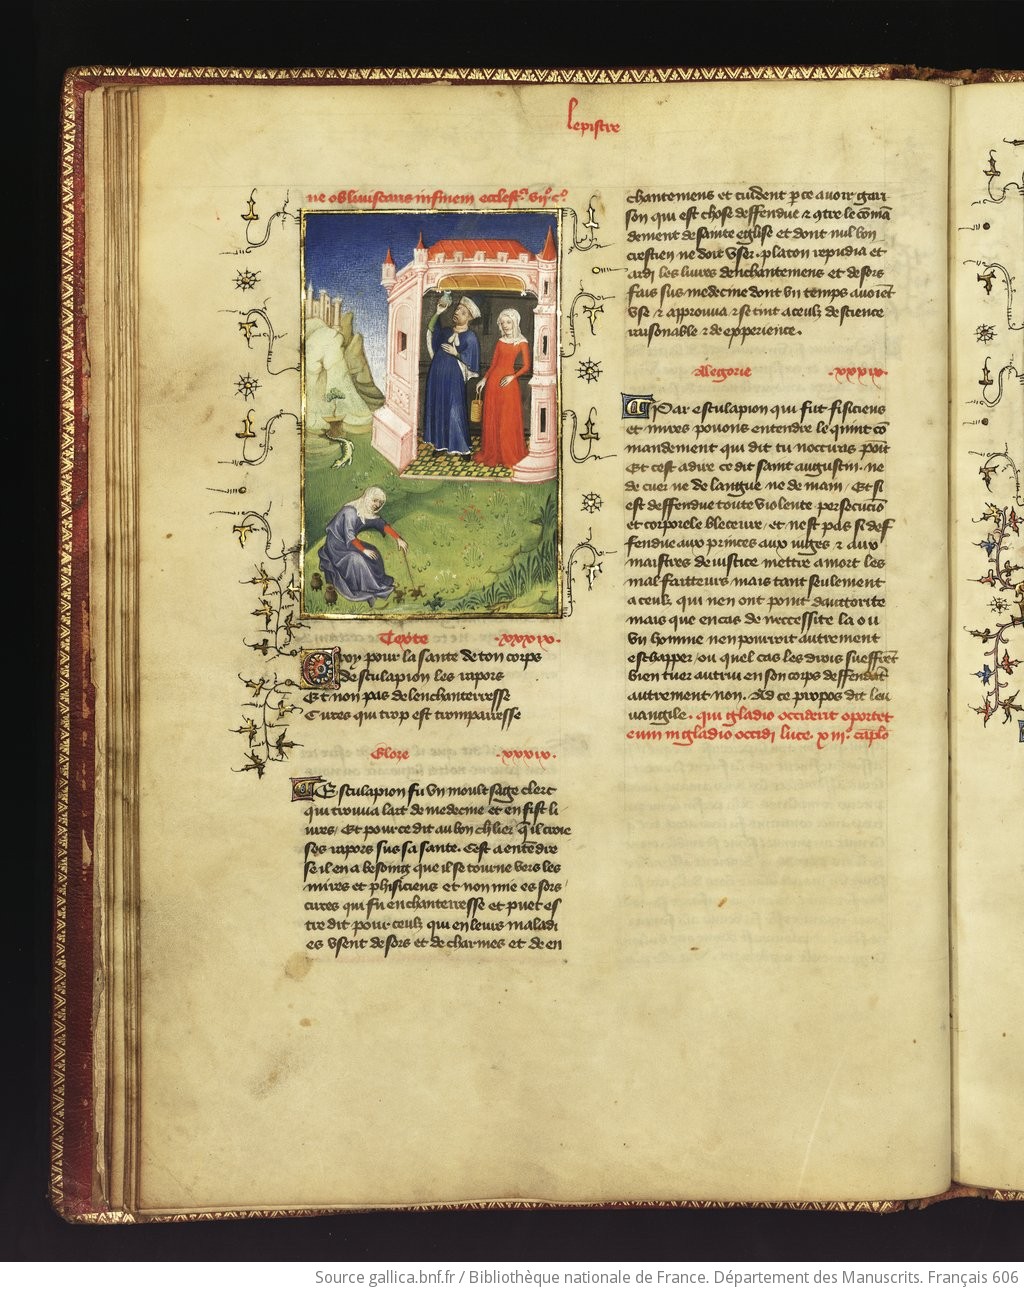 Lepistre
ne obliviscaris in finem ecclesi. vij. c.
Texte .xxxix.
Croy pour la sante de ton corps
De sculapion les rapors
Et non pas de lenchanterresse
Circes qui trop est tromparresse
Glose .xxxix.
Esculapion fu vn moult sage clerc
qui trouua lart de medecine et en fist li
ures / Et pour ce dit au bon chlier q il croie
ses rapors sus sa sante. Cest a entedre
se il en a besoing que il se tourne vers les
mires et phisiciens et non mie es sors
circes qui fu enchanterresse et puet es
tre dit pour ceulx qui en leurs maladi
es vsent de sors et de charmes et de en
chantemens et cuident p ce auoir gari
son qui est chose deffendue et otre le coma
dement de sainte eglise et dont nul bon
crestien ne doit vser. platon repudia et
ardi les liures denchantemens et de sors
fais sus medecine dont vn temps auoiet
vse et approuua et se tint a ceulx de science
raisonable et de experience.
Alegorie .xxxix.
Par esculapion qui fut fisiciens
et mires pouons entendre le quint co
mandement qui dit tu nocciras poit
Et cest a dire ce dit saint augustin. ne
de cuer ne de langue ne de main / Et si
est deffendue toute violente persecucio
et corporele bleceure / et nest pas si def
fendue aux princes aux iuges et aux
maistres de iustice mettre a mort les
malfaitteurs mais tant seulement
a ceulx qui nen ont point dauttorite
mais que en cas de necessite la ou
vn homme nen pourroit autrement
eschapper / ou quel cas les drois sueffret
bien tuer autrui en son corps deffendat
autrement non. Ad ce propos dit leu
uangile. qui gladio occiderit oportet
eum in gladio occidi luce. xiii. caplo
Source gallica.bnf.fr / Bibliothèque nationale de France. Département des Manuscrits. Français 606